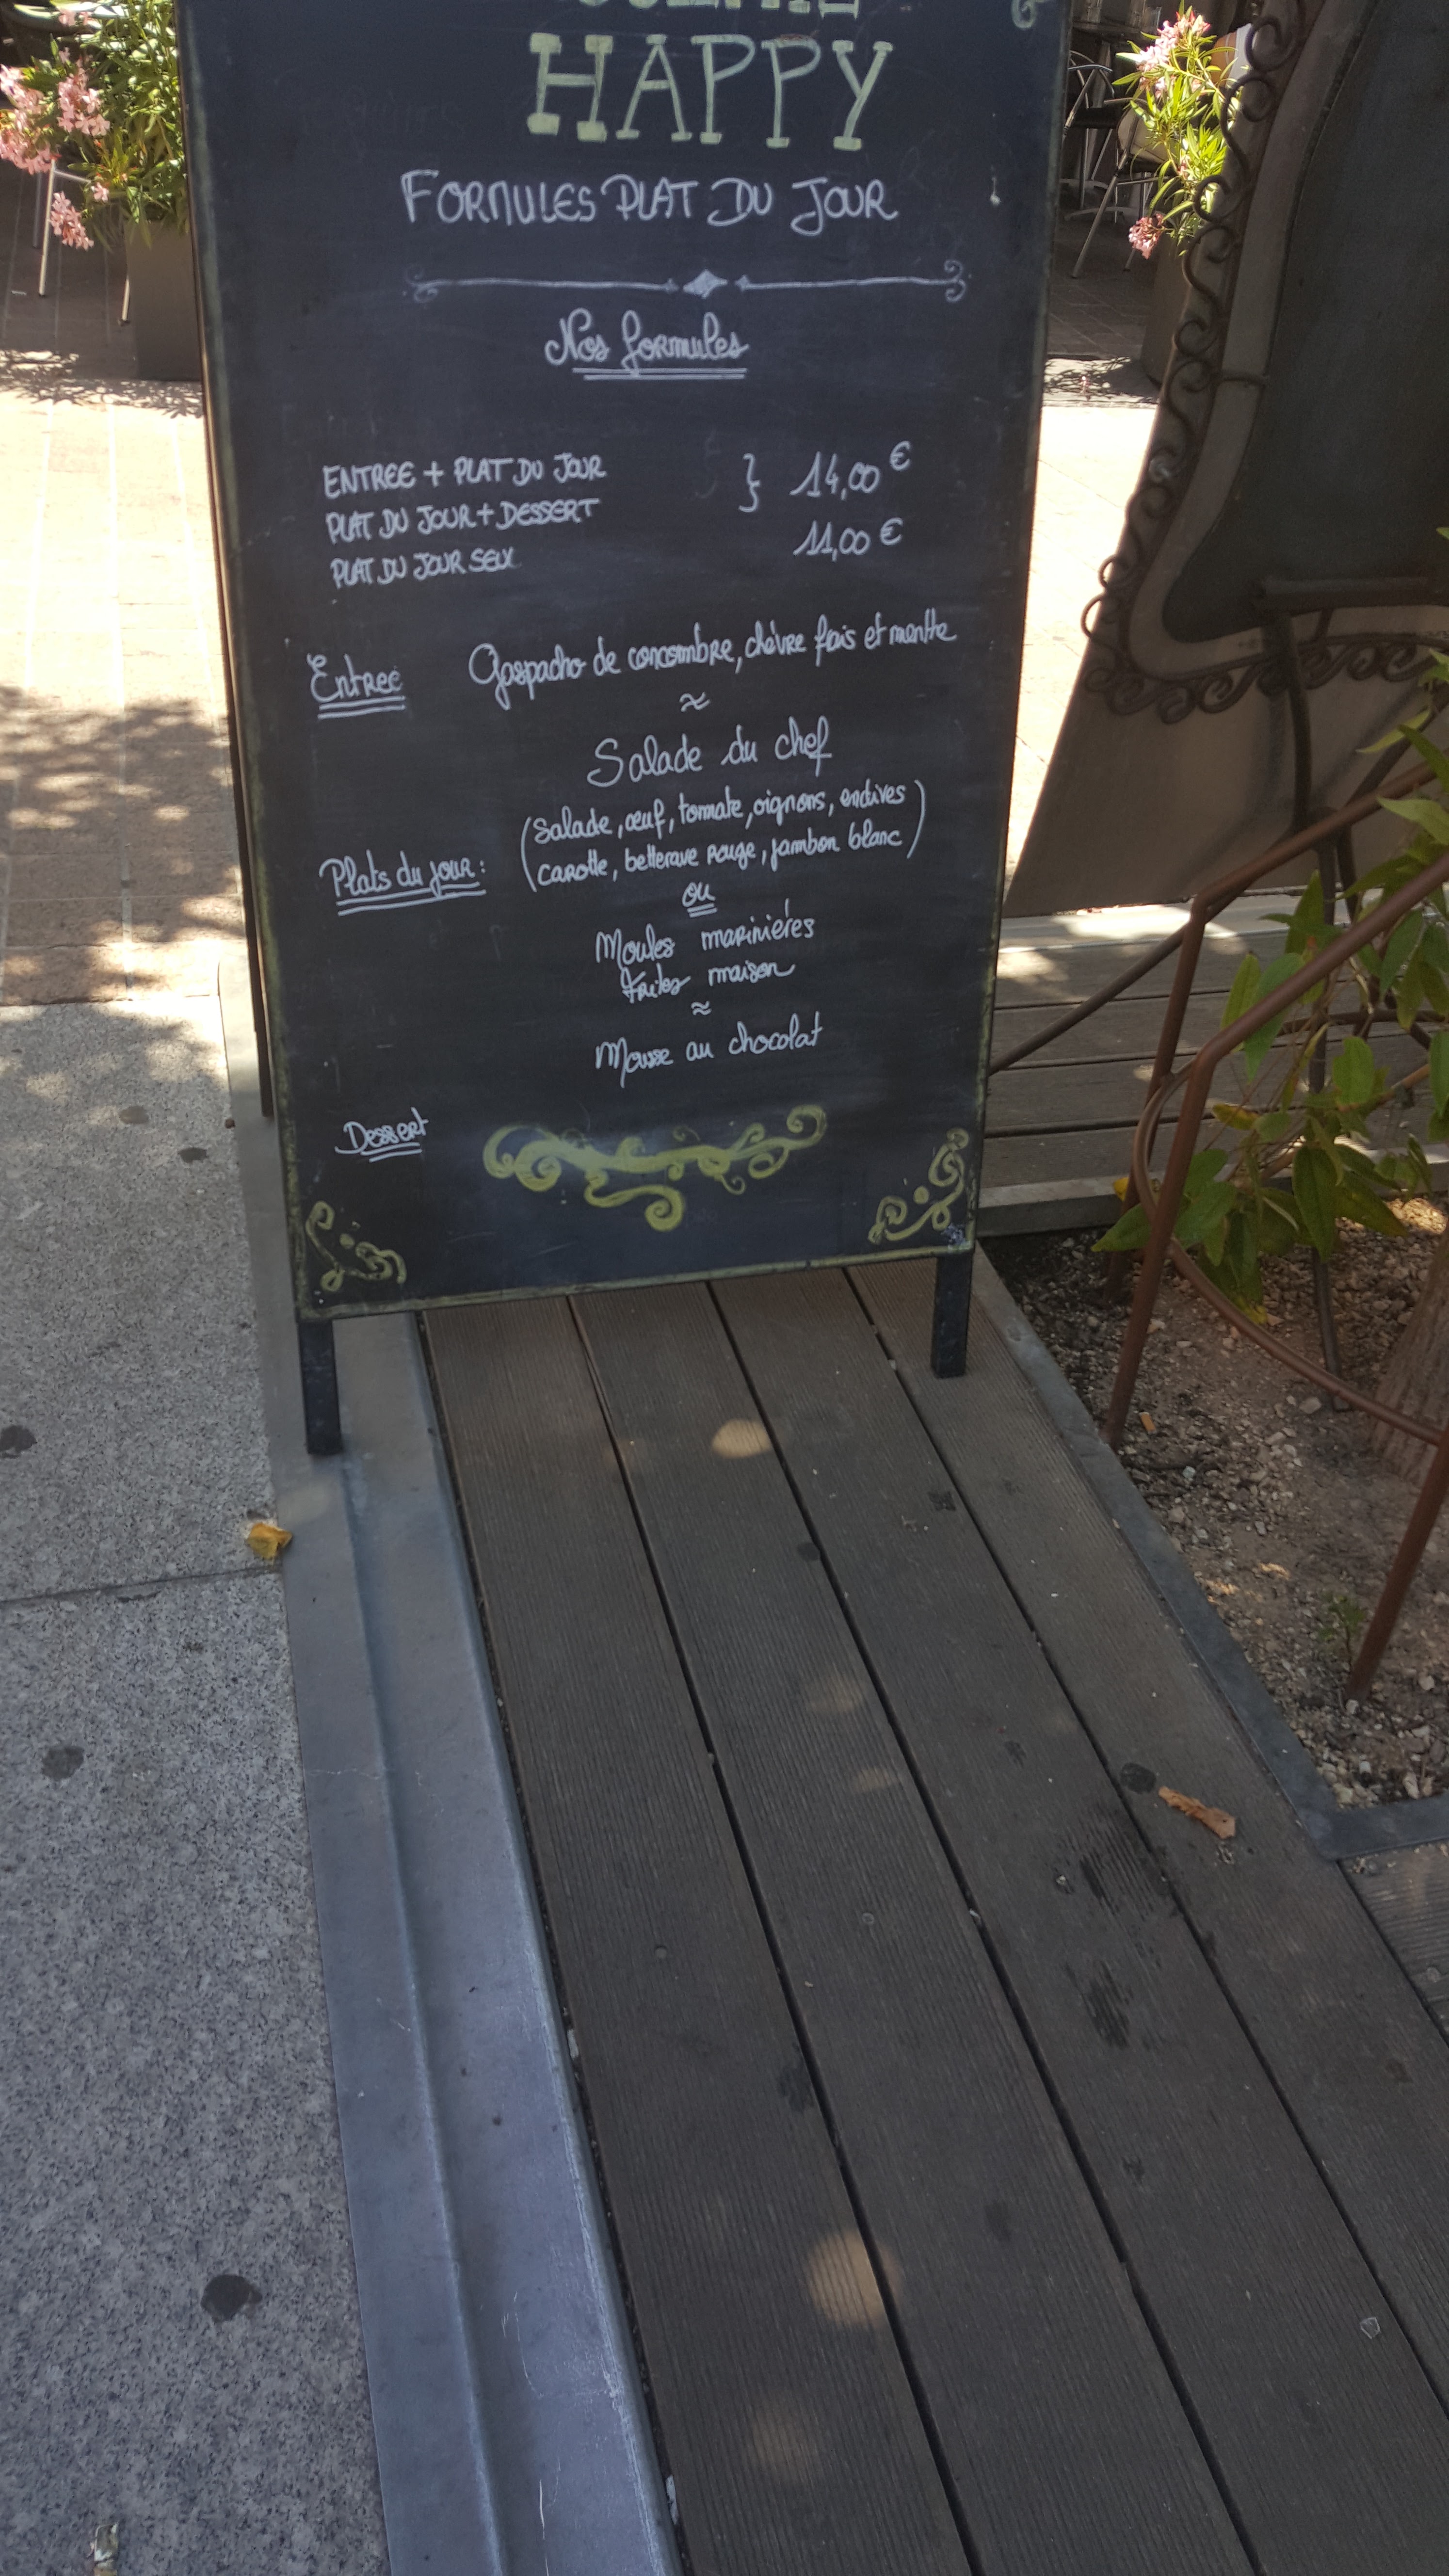 HAPPY
FORMULES PLAT DU JOUR
Nos formules
ENTREE + PLAT DU JOUR
PLAT DU JOUR + DESSERT } 14,00 €
PLAT DU JOUR SEUL 11,00 €
Entree Gaspacho de concombre, chèvre frais et menthe
≈
Salade du chef
(Salade, œuf, tomate, oignons, endives
Plats du jour: carotte, betterave rouge, jambon blanc)
ou
Moules marinières
frites maison
≈
Mousse au chocolat
Dessert